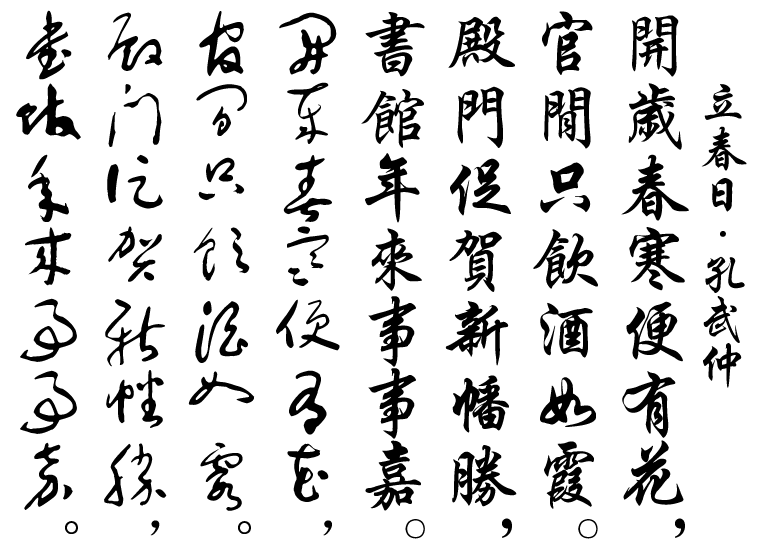 立春日·孔武仲
開歲春寒便有花，
官閒只飲酒如霞。
殿門促賀新幡勝，
書館年來事事嘉。
開歲春寒便有花，
官閒只飲酒如霞。
殿門促賀新幡勝，
書館年來事事嘉。